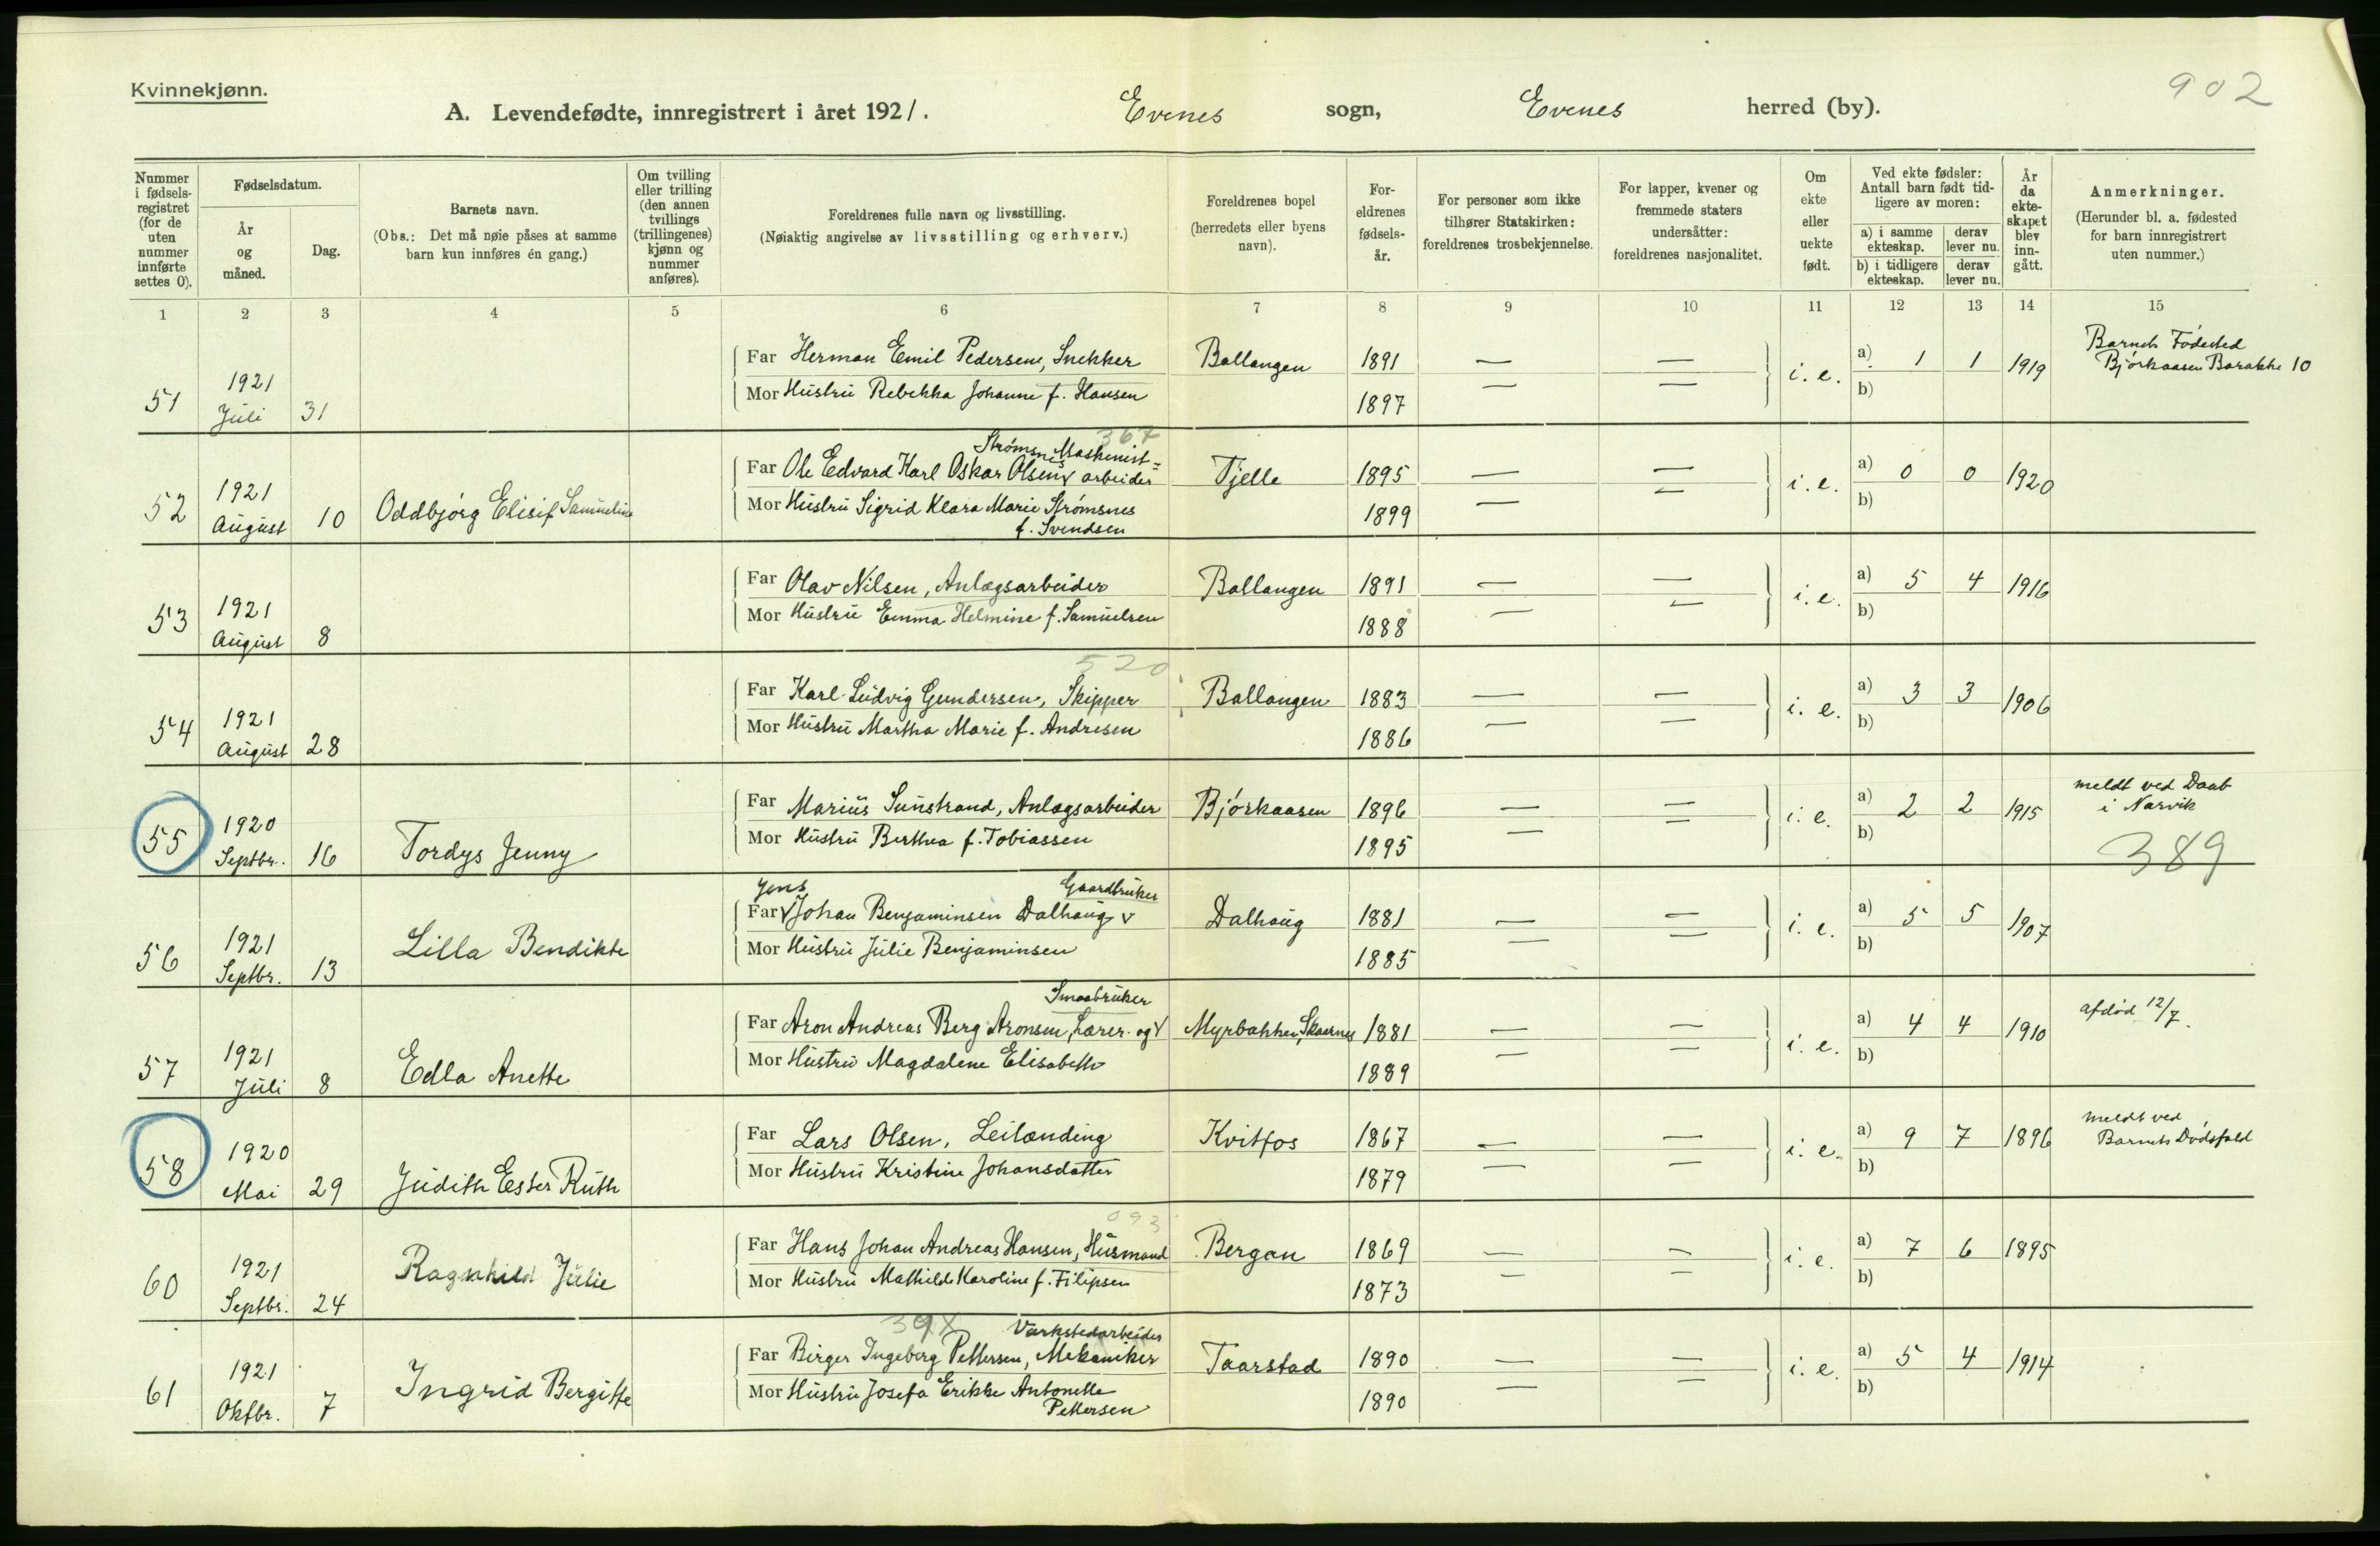 Kvinnekjønn.
902
A. Levendefødte, innregistrert i året 1921. Evenes sogn, Evenes herred (by).
Nummer i fødsels-registret (for de uten nummer innførte settes 0).
Fødselsdatum.
År og måned.
Dag.
Barnets navn.
(Obs.: Det må nøie påses at samme barn kun innføres én gang.)
Om tvilling eller trilling (den annen tvillings (trillingenes) kjønn og nummer anføres).
Foreldrenes fulle navn og livsstilling.
(Nøiaktig angivelse av livsstilling og erhverv.)
Foreldrenes bopel (herredets eller byens navn).
For-eldrenes fødsels-år.
For personer som ikke tilhører Statskirken: foreldrenes trosbekjennelse.
For lapper, kvener og fremmede staters undersåtter: foreldrenes nasjonalitet.
Om ekte eller uekte født.
Ved ekte fødsler: Antall barn født tid-ligere av moren:
a) i samme ekteskap. derav lever nu.
b) i tidligere ekteskap. derav lever nu.
År da ekte-skapet blev inn-gått.
Anmerkninger.
(Herunder bl. a. fødested for barn innregistrert uten nummer.)
1 2 3 4 5 6 7 8 9 10 11 12 13 14 15
51 1921 Juli 31
Far Herman Emil Pedersen, Snekker Ballangen 1891 — — i. e. a) 1 1 1919 Barnets Fødested Bjørkaasen Barakke 10
Mor Hustru Rebekka Johanne f. Hansen 1897 — — b)
367
52 1921 August 10 Oddbjørg Elisif Samueline
Strømsnes Maskinist-
Far Ole Edvard Karl Oskar Olsen v arbeider Tjelle 1895 — — i. e. a) 0 0 1920
Mor Hustru Sigrid Klara Marie Strømsnes 1899 — — b)
f. Svendsen
53 1921 August 8
Far Olav Nilsen, Anlægsarbeider Ballangen 1891 — — i. e. a) 5 4 1916
Mor Hustru Emma Helmine f. Samuelsen 1888 — — b)
520
54 1921 August 28
Far Karl Ludvig Gundersen, Skipper Ballangen 1883 — — i. e. a) 3 3 1906
Mor Hustru Martha Marie f. Andresen 1886 — — b)
55 1920 Septbr. 16 Tordys Jenny
Far Marius Sunstrand, Anlagsarbeider Bjørkaasen 1896 — — i. e. a) 2 2 1915 meldt ved Daab i Narvik
Mor Hustru Berthea f. Tobiassen 1895 — — b)
389
56 1921 Septbr. 13 Lilla Bendikte
Jens Gaardbruker
Far v Johan Benjaminsen Dalhaug v Dalhaug 1881 — — i. e. a) 5 5 1907
Mor Hustru Julie Benjaminsen 1885 — — b)
57 1921 Juli 8 Edla Anette
Smaabruker
Far Aron Andreas Berg Aronsen, Lærer og v Myrbakken, Skaernes 1881 — — i. e. a) 4 4 1910 afdød 12/7.
Mor Hustru Magdalene Elisabeth 1889 — — b)
58 1920 Mai 29 Judith Ester Ruth
Far Lars Olsen, Leilænding Kvitfos 1867 — — i. e. a) 9 7 1896 meldt ved Barnets Dødsfald
Mor Hustru Kristine Johansdatter 1879 — — b)
093
60 1921 Septbr. 24 Ragnhild Julie
Far Hans Johan Andreas Hansen, Husmand Bergan 1869 — — i. e. a) 7 6 1895
Mor Hustru Mathilde Karoline f. Filipsen 1873 — — b)
61 1921 Oktbr. 7 Ingrid Bergitte
Værkstedarbeider
Far Birger Ingeberg Pettersen, Mekaniker Taarstad 1890 — — i. e. a) 5 4 1914
Mor Hustru Josefa Erikke Antonette 1890 — — b)
Pettersen